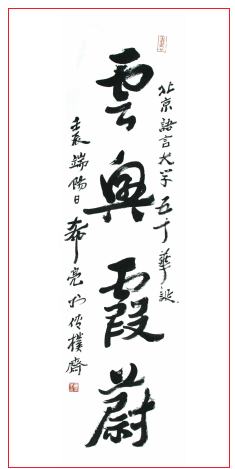 北京語言大学五十華誕
雲興霞蔚
壬辰端陽日希亮於樸齋